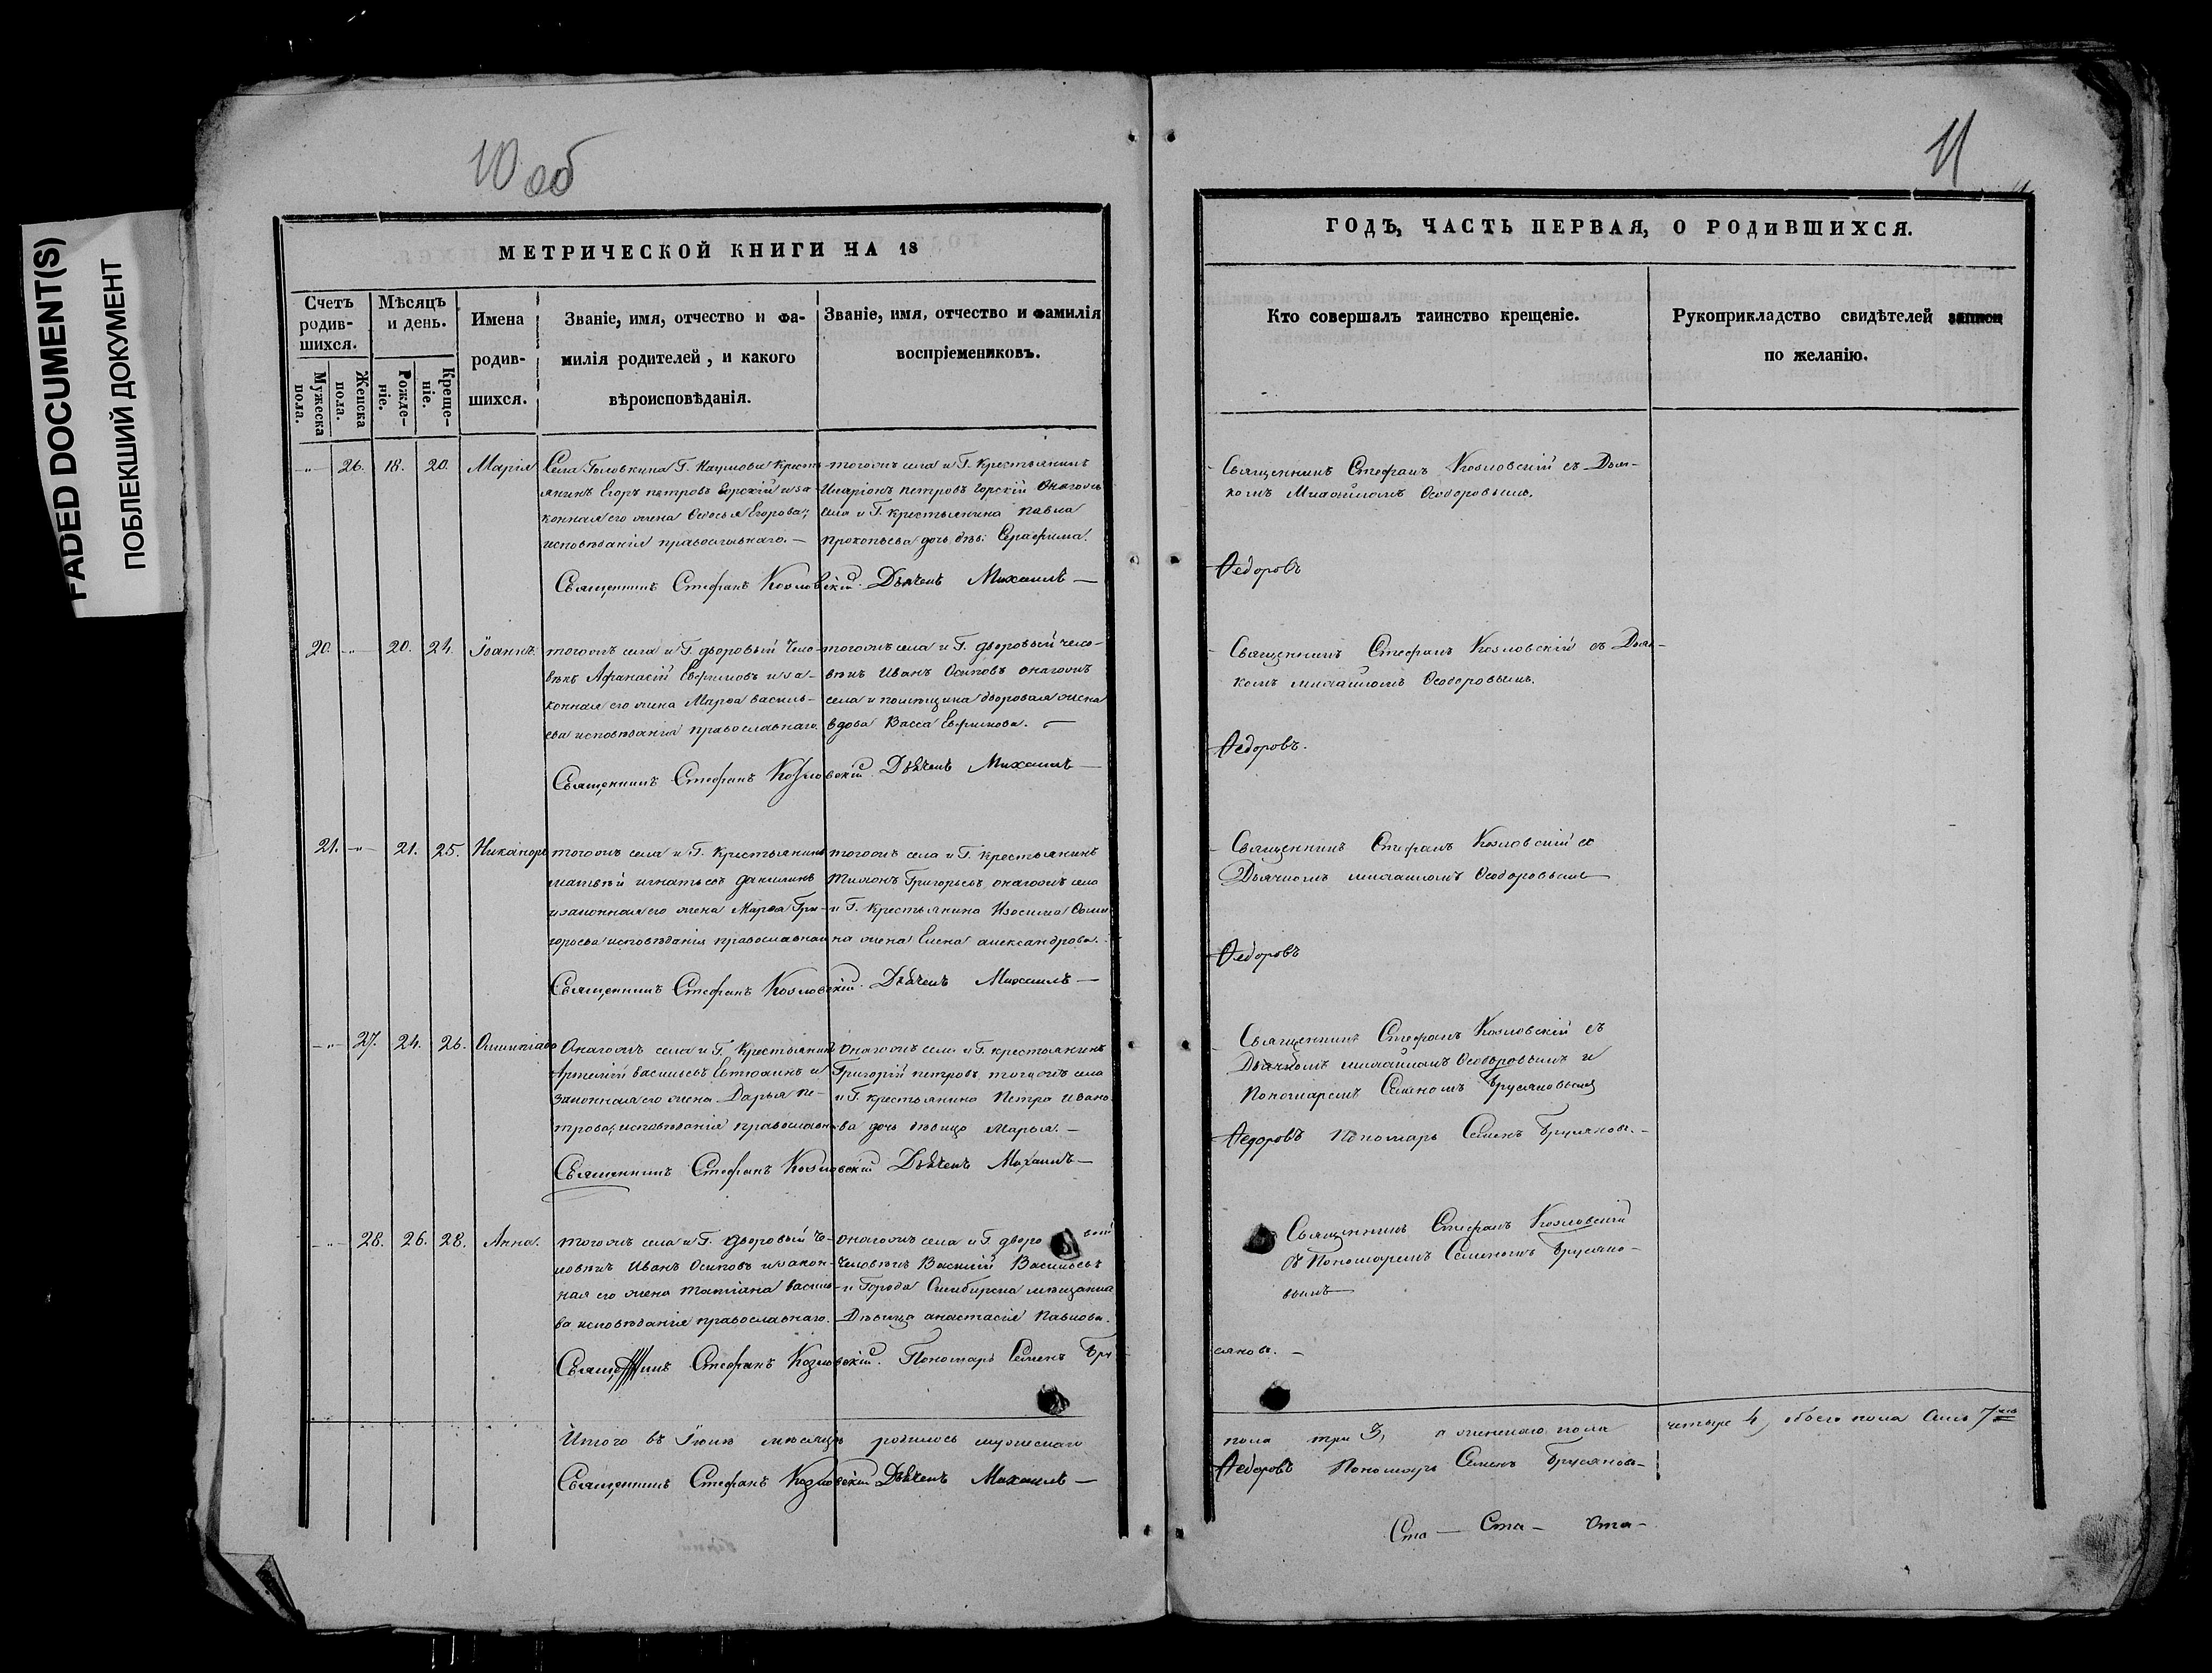 FADED DOCUMENT(S)
ПОБЛЕКШИЙ ДОКУМЕНТ
10 об
МЕТРИЧЕСКОЙ КНИГИ НА 18
Счетъ родив-шихся.
Мужеска пола.
Женска пола.
Мѣсяцъ и день.
Рожде-ніе.
Креще-ніе.
Имена
родив-
шихся.
Званіе, имя, отчество и фа-
милія родителей, и какого
вѣроисповѣданія.
Званіе, имя, отчество и фамилія
воспріемениковъ.
-"- 26. 18. 20. Марія
Села Головкина Г. Наумова Кресть-
янинъ Егоръ петровъ Горскій и за-
конная его жена Ѳедосья Егорова;
исповѣданія православнаго. —
тогожъ села и Г. Крестьянинъ
Иларіонъ петровъ Горскій Онагожъ
села и Г. Крестьянина Павла
Прокопьева дочь дѣв: Серафима.
Священникъ Стефанъ Козловскій. Дьячекъ Михаилъ —
20. -"- 20. 24. Іоаннъ.
тогожъ села и Г. дворовый Чело-
вѣкъ Афанасій Ефимовъ и за-
конная его жена Марѳа василь-
ева исповѣданія православнаго.
тогожъ села и Г. дворовый чело-
вѣкъ Иванъ Осиповъ онагожъ
села и помѣщика дворовая жена
вдова Васса Ефимова. —
Священникъ Стефанъ Козловскій. Дьячекъ Михаилъ —
21. -"- 21. 25. Никаноръ
тогожъ села и Г. Крестьянинъ
матвѣй игнатьевъ данилинъ
и законная его жена Марѳа Гри-
горьева исповѣданія православнаго
тогожъ села и Г. Крестьянинъ
Тимонъ Григорьевъ, онагожъ села
и Г. Крестьянина Изосима
на жена Елена александрова.
Священникъ Стефанъ Козловскій. Дьячекъ Михаилъ —
-"- 27. 24. 26. Олимпіада
Онагожъ села и Г. Крестьянинъ
Артемій васильевъ Евтюхинъ и
законная его жена Дарья пе-
трова, исповѣданія православна
Онагожъ села и Г. крестьянинъ
Григорій петровъ, тогожъ села
и Г. крестьянина Петра Ивано-
ва дочь дѣвица Марья. —
Священникъ Стефанъ Козловскій Дьячекъ Михаилъ —
-"- 28. 26. 28. Анна.
тогожъ села и Г. дворовый Че-
ловѣкъ Иванъ Осиповъ и закон-
ная его жена татіана василье-
ва исповѣданія православнаго.
онагожъ села и Г. дворо вый
Человѣкъ Василій Васильевъ
и Города Симбирска мѣщанка
Дѣвица анастасія Павлова.
Священникъ Стефанъ Козловскій. Пономарь Семенъ Бру
Итого въ Іюнѣ мѣсяцѣ родилось мужескаго
Священникъ Стефанъ Козловскій Дьячекъ Михаилъ —
11
ГОДЪ, ЧАСТЬ ПЕРВАЯ, О РОДИВШИХСЯ.
Кто совершалъ таинство крещеніе.
Рукоприкладство свидѣтелей записи
по желанію.
Священникъ Стефанъ Козловскій съ Дьяч-
комъ Михаиломъ Ѳеодоровымъ.
Ѳедоровъ
Священникъ Стефанъ Козловскій съ Дьяч-
комъ михаиломъ Ѳеодоровымъ.
Ѳедоровъ.
Священникъ Стефанъ Козловскій съ
Дьячкомъ михаиломъ Ѳеодоровымъ
Ѳедоровъ
Священникъ Стефанъ Козловскій съ
Дьячкомъ михаиломъ Ѳеодоровымъ и
Пономаремъ Семеномъ Брусяновымъ
Ѳедоровъ Пономарь Семенъ Брусяновъ. —
Священникъ Стефанъ Козловскій
съ Пономаремъ Семеномъ Брусяно-
вымъ
сяновъ. —
пола три 3, а женскаго пола
четыре 4, обоего пола семь 7
Ѳедоровъ Пономарь Семенъ Брусяновъ —